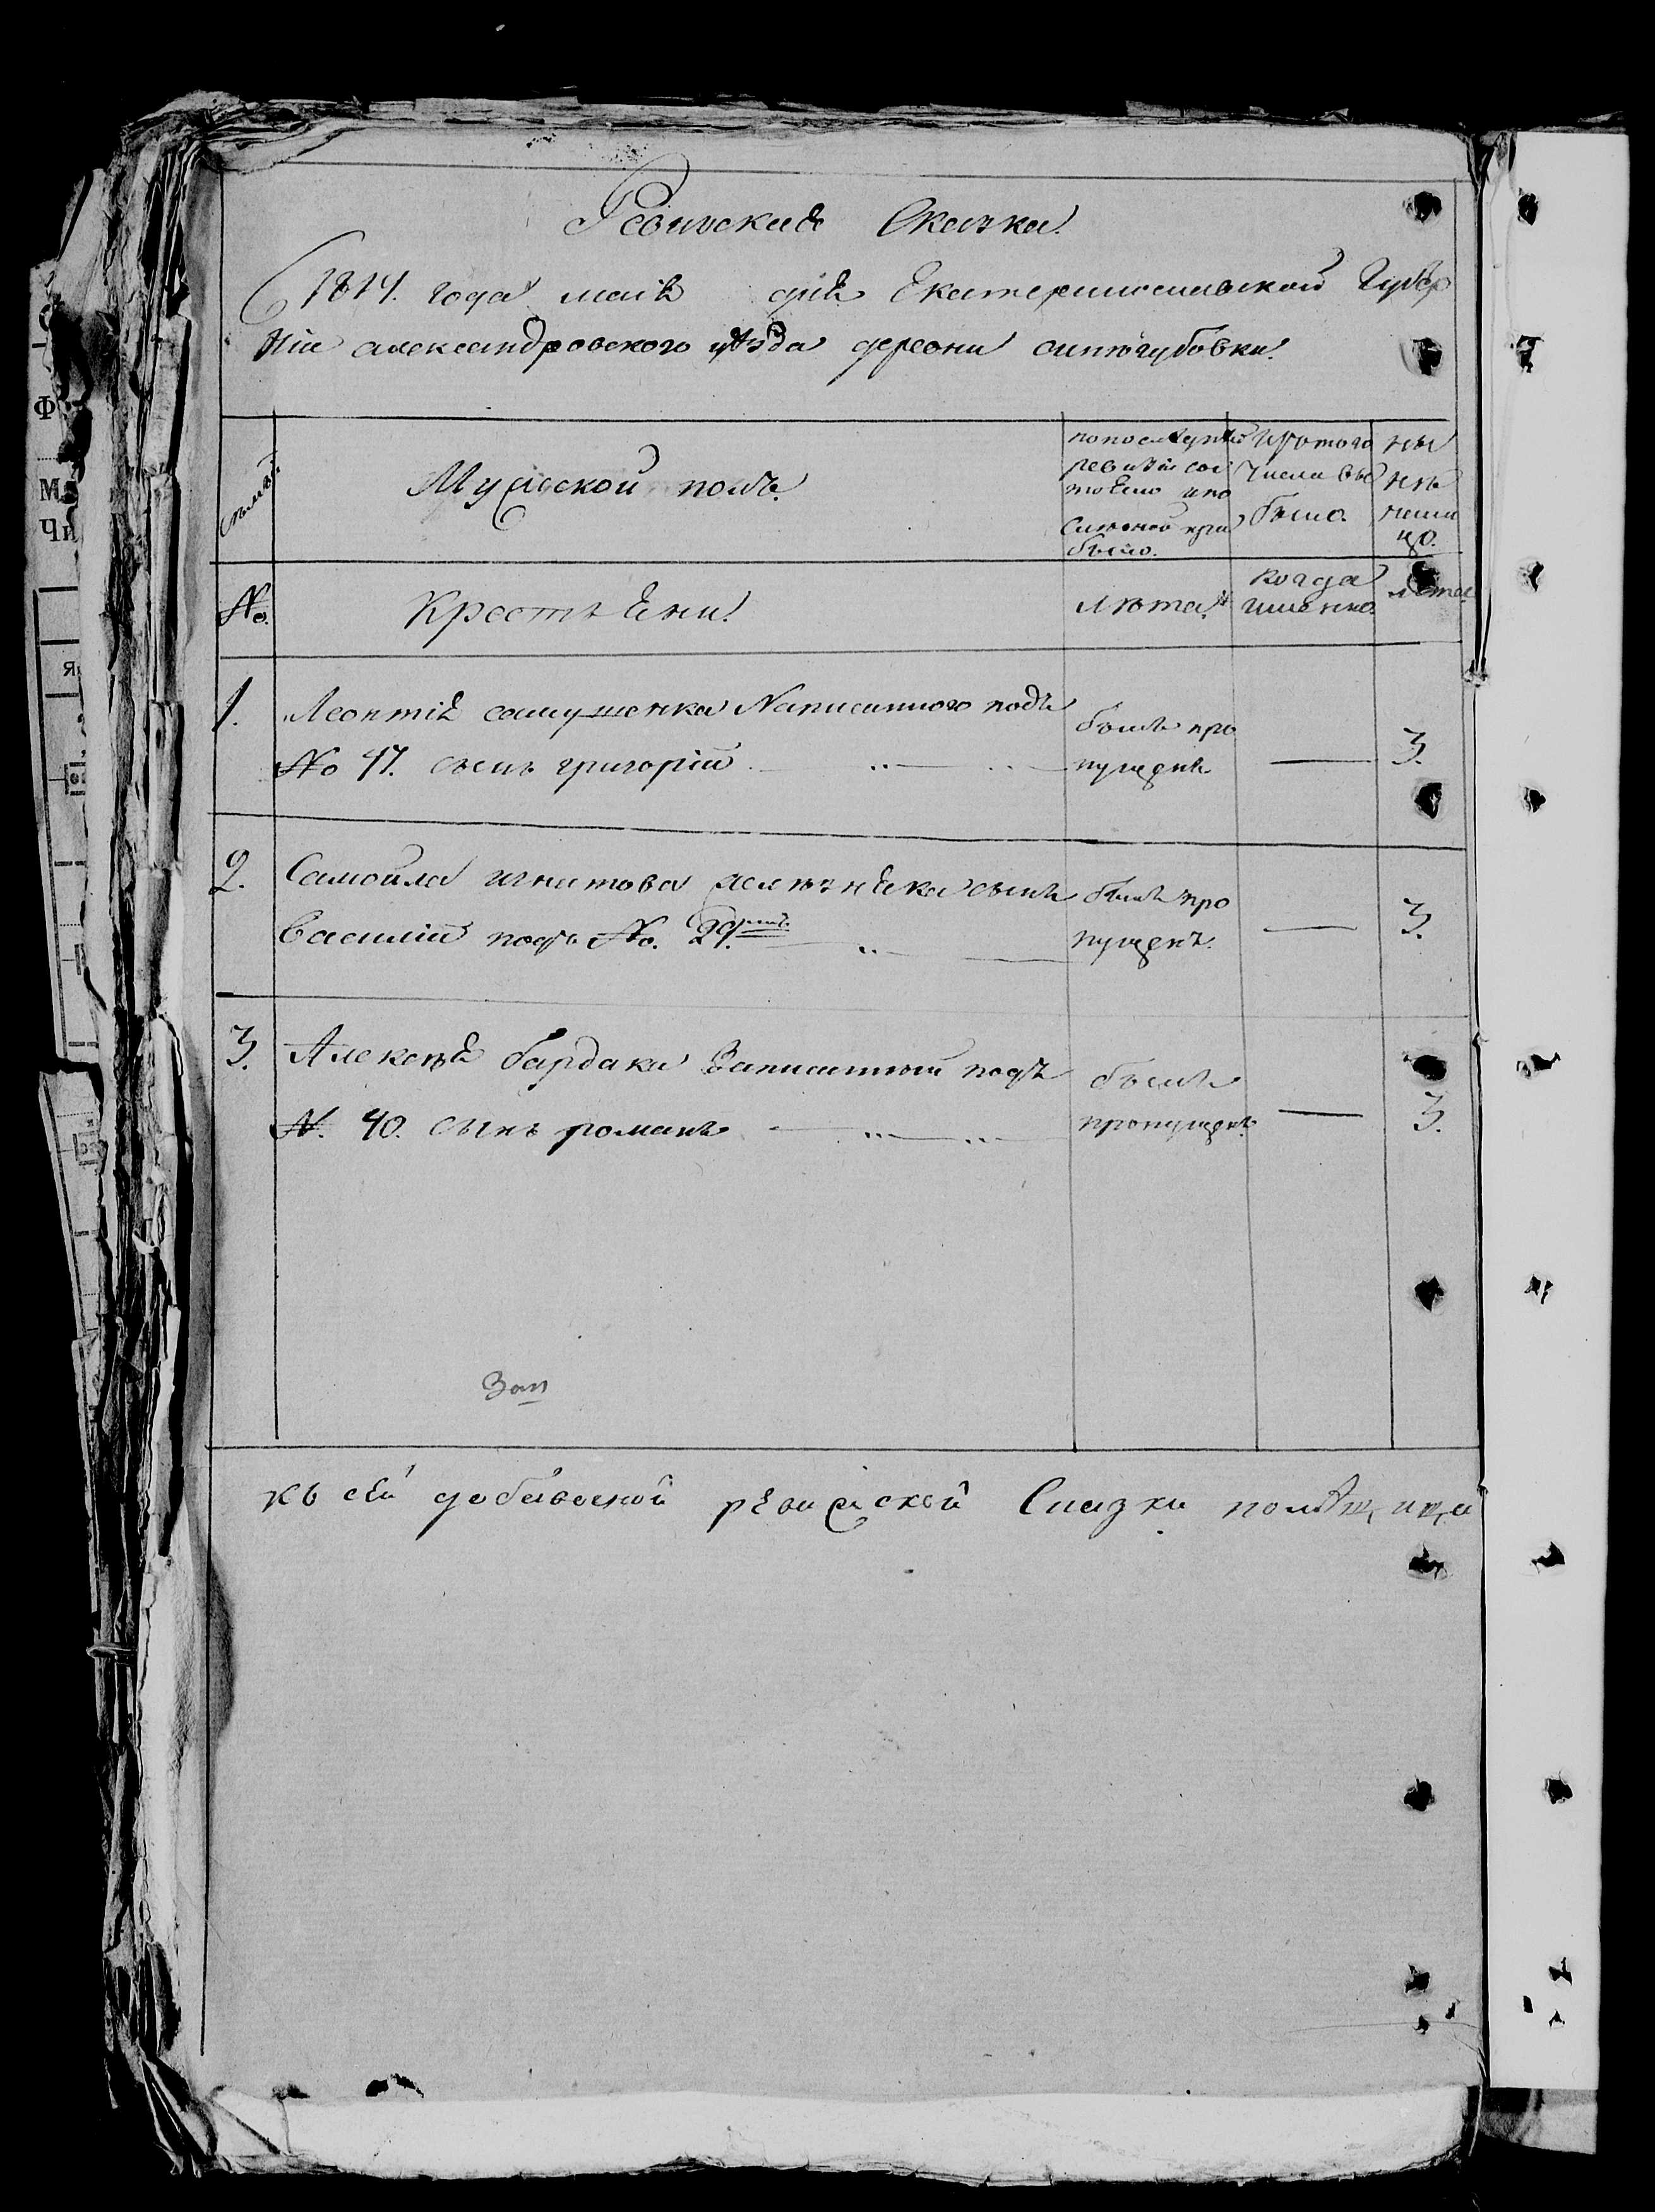 Ревиская Сказка.
1814. года маія дня Екатеринославской Губер
ніи александровского уѣзда деревни синюгубовки.
семьи.
Мужеской полъ.
по последней
ревизіи сос
тояло и по
слѣ оной при
было.
Изъ того
числа вы
было.
ны
нѣ
нали
цо.
No.
Крестьяни.
лѣта.
когда
именно.
лѣта.
1.
Леонтія самушенка Написанного подъ
No 47. сынъ григорій
былъ про
пущенъ
—
3.
2.
Самойла игнатова железняка сынъ
Василій подъ No. 29.
былъ про
пущенъ.
—
3.
3.
Алексѣя бардака Записанный подъ
N. 40. сынъ романъ
былъ
пропущенъ.
—
3.
Зап
къ сей добавочной ревижской Сказки помѣщица
Ф
М
Чи
Я